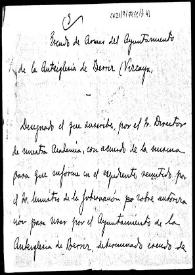 Escudo de Armas del Ayuntamiento
de la Anteiglesia de Derio (Vizcaya)
Designado el que suscribe, por el Sr. Director
de nuestra Academia, con acuerdo de la misma
para que informe en el expediente remitido por
el Sr. Ministro de la Gobernación sobre autoriza-
ción para usar por el Ayuntamiento de la
Anteiglesia de determinado escudo de